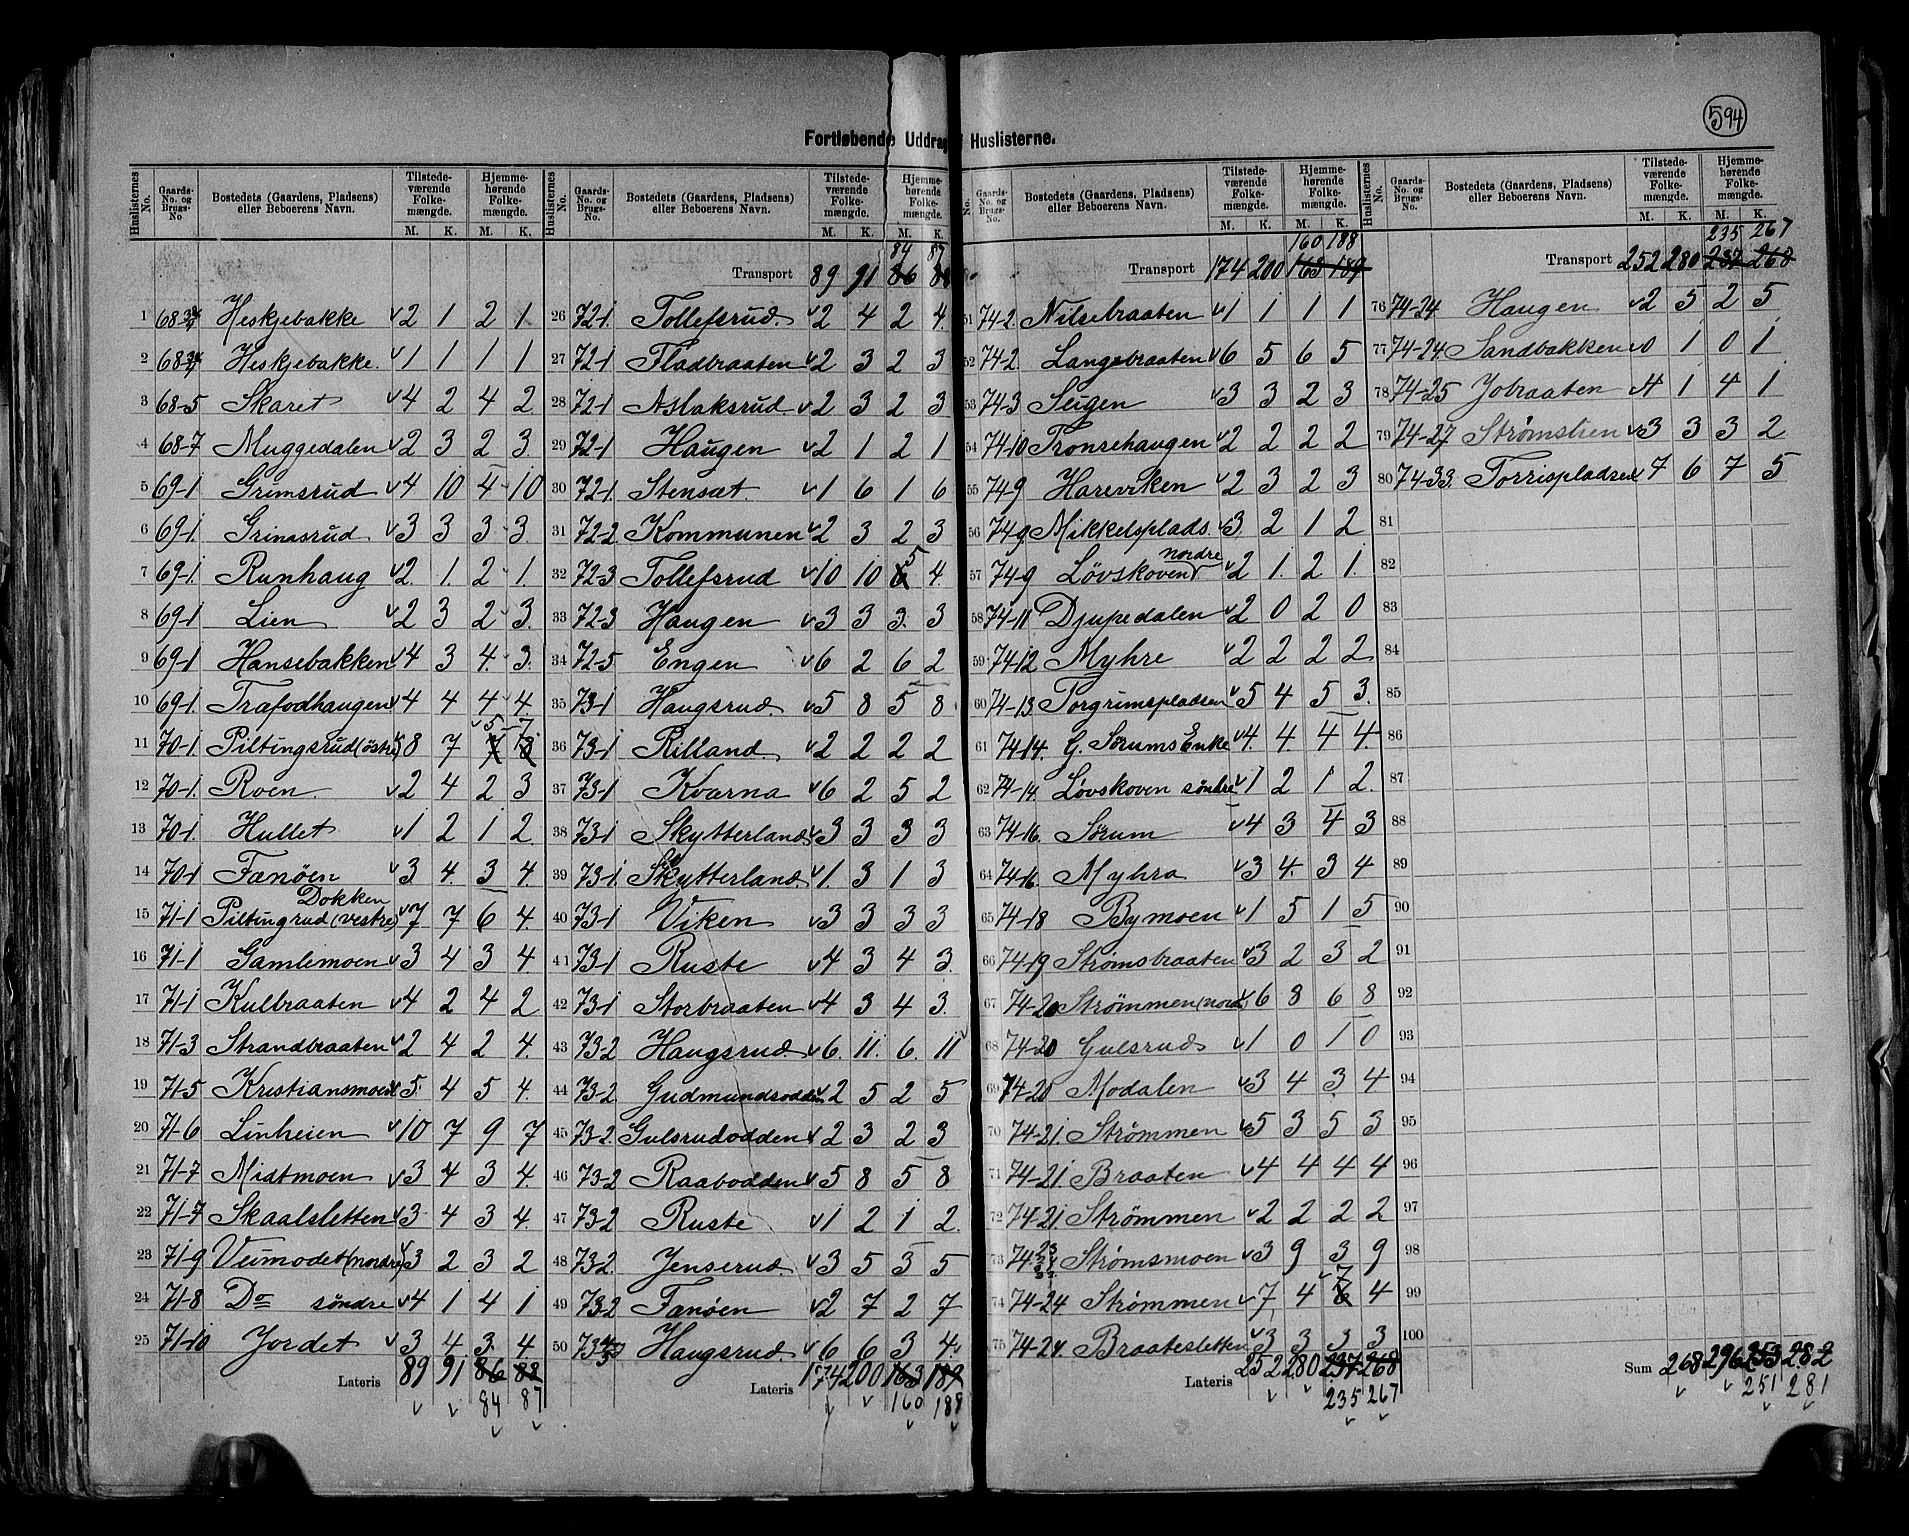 594
Fortløbende Uddrag Huslisterne.
Huslisternes No. Gaards-No. og Brugs-No Bostedets (Gaardens, Pladsens) eller Beboerens Navn. Tilstedeværende Folkemængde. M. K. Hjemmehørende Folkemængde. M. K.
Huslisternes No. Gaards-No. og Brugs-No. Bostedets (Gaardens, Pladsens) eller Beboerens Navn. Tilstedeværende Folkemængde. M. K. Hjemmehørende Folkemængde. M. K.
No. Gaards-No. og Brugs-No. Bostedets (Gaardens, Pladsens) eller Beboerens Navn. Tilstedeværende Folkemængde. M. K. Hjemmehørende Folkemængde. M. K.
Huslisternes No. Gaards-No. og Brugs-No. Bostedets (Gaardens, Pladsens) eller Beboerens Navn. Tilstedeværende Folkemængde. M. K. Hjemmehørende Folkemængde. M. K.
1 Heskjebakke 2 1 2 1
2 Heskjebakke. 1 1 1 1
3 68-5 Skaret 4 2 4 2
4 68-7 Muggedalen 2 3 2 3
5 69-1 Grimsrud 4 10 4 10
6 69-1. Grimsrud 3 3 3 3
7 69-1. Runhaug 2 1. 2 1.
8 69-1 Lien 2 3 2 3.
9 69-1 Hansebakken 4 3 4. 3.
10 69-1. Trafodhaugen 4 4 4 4.
11 70-1. Piltingsrud (östre) 8 7 5 7
12 70-1. Roen 2 4 2 3
13 70-1. Hullet 1 2 1 2.
14 70-1 Fanöen 3. 4. 3 4.
Dokken
15 71-1 Piltingrud (vestre) 7 7 6 4.
16 71-1 Gamlemoen 3 4 3 4
17 71-1 Kulbraaten 4 2 4 2
18 71-3 Strandbraaten 2 4 2 4.
19 71-5 Kristiansmoen 5. 4 5 4.
20 71-6 Linheien 10 7 9 7
21 71-7 Midtmoen 3 4 3 4.
22 71-7 Skaalsletten 3 4 3 4.
23 71-9 Veimodet (nordre) 3 2 3 2
24 71-8 Do söndre 4 1 4 1
25 71-10 Jordet 3 4 3. 4
Lateris 89 91 86 88
84 87
84 87
Transport 89 91 86 88
26 72-1. Tollefsrud. 2 4 2 4.
27 72-1 Fladbraaten 2 3 2 3
28 72-1 Aslaksrud 2 3 2 3
29 72-1 Haugen 2 1 2 1
30 72-1. Stensæt. 1 6 1 6
31 72-2. Kommunen 2 3 2 3
32 72-3 Tollefsrud 10 10 5 4.
33 72-3 Haugen 3 3 3. 3
34 72-5 Engen 6 2 6 2
35 73-1 Haugsrud. 5 8 5 8
36 73-1 Rilland. 2 2 2 2
37 73-1 Kværna 6 2 5 2
38 73-1 Skytterland 3 3 3 3
39 73-1. Skytterland. 1. 3 1 3
40 73-1 Viken 3 3 3 3
41 73-1 Ruste 4 3 4 3.
42 73-1 Storbraaten 4 3 4 3.
43 73-2 Haugsrud. 6. 11. 6. 11
44 73-2. Gudmundsodden 2 5 2 5
45 73-2 Gulsrudodden 2 3 2 3
46 73-2 Raabodden 5 8 5 8
47 73-2 Ruste 1 2 1 2.
48 73-2. Jenserud. 3 5 3 5
49 73-2 Fanöen 2 7 2 7
50 Haugsrud. 6 6 3 4
Lateris 174 200 163 189
160 188
160 188
Transport 174 200 163 189
51 74-2. Nilsebraaten 1 1 1 1
52 74-2. Langebraaten 6 5 6 5
53 74-3 Seugen 3 3 2 3
54 74-10 Tronsehaugen 2 2 2 2
55 74-9 Hareviken 2 3 2 3
56 74-9 Mikkelsplads. 3. 2 1 2
57 74-9 Lövskoven nordre 2 1. 2 1.
58 74-11 Djupedalen 2 0 2 0
59 74-12 Myhre 2 2 2 2
60 74-13. Torgrimspladsen 5 4 5 3.
61 74-14. G. Sørums Enke 4. 4. 4 4.
62 74-14. Lövskoven söndre 1 2 1 2.
63 74-16. Sørum 4 3 4 3
64 74-16. Myhra 3 4. 3 4
65 74-18 Bymoen 1 5 1 5
66 74-19 Strömsbraaten 3 2 3 2
67 74-20 Strömmen (nord) 6 8 6 8
68 74-20 Gulsrud 1 0 1 0
69 74-20 Modalen 3 4 3 4
70 74-21. Strömmen 5 3 5 3
71 74-21. Braaten 4 4 4 4
72 74-21. Strömmen 2 2 2 2
73 Strömsmoen 3 9 3 9
74 74-24 Strömmen 7 4 7 4
75 74-24. Braatesletten 3 3 3 3
Lateris 252 280 237 268
235 267
235 267
Transport 252 280 237 268
76 74-24. Haugen 2 5 2 5
77 74-24 Sandbakken 0 1 0 1
78 74-25 Jobraaten 4 1 4 1
79 74-27 Strømstien 3 3 3 2
80 74-33. Torrispladsen 7 6 7 5
81
82
83
84
85
86
87
88
89
90
91
92
93
94
95
96
97
98
99
100
Sum 268 296 253 282
251 281